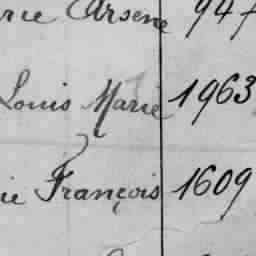 rie Arsene 947
Louis Marie 1963
ie François 1609